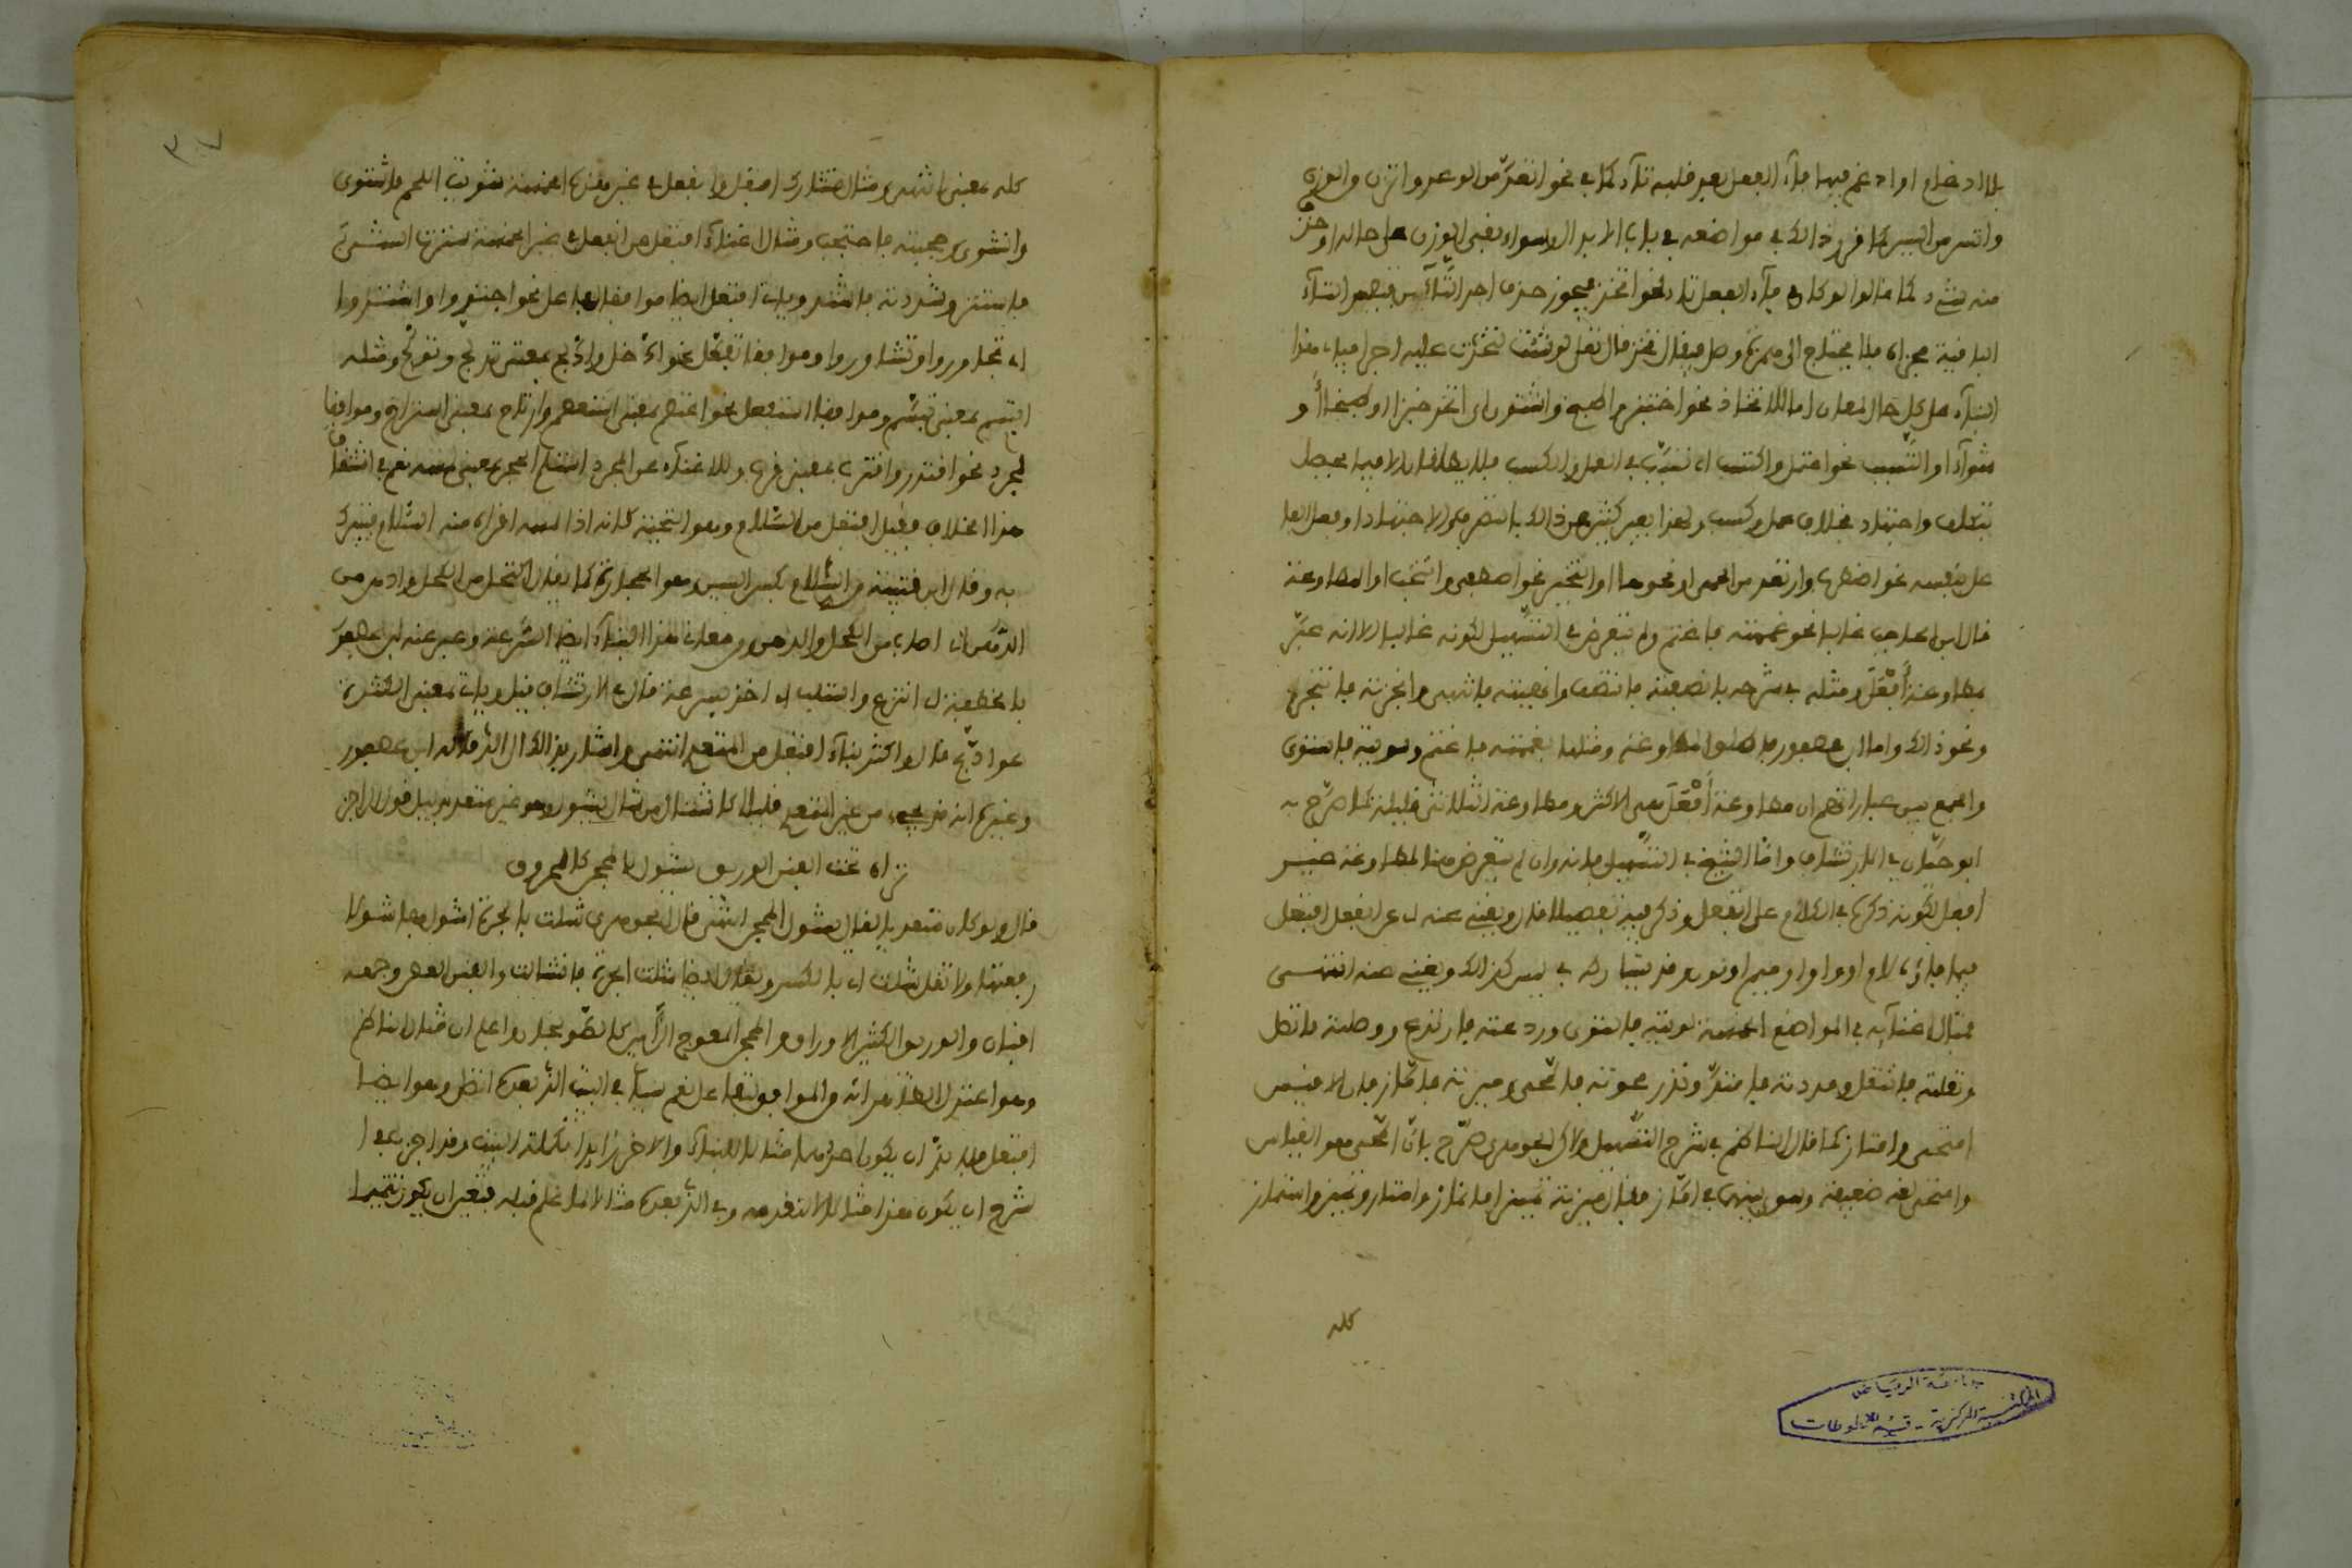 بالادغام او ادغم فيها فاء الفعل بعد قلبه تاء كما في نحو اتعد من الوعد واتزن من الوزن
واتسر من اليسر كما قرر ذلك في مواضعه في باب الابدال
منه شيء كما قالوا لو كان فاء الفعل تاء نحو اتخذ فيجوز حذف احدى التاءين فتصير التاء
الباقية مجزاة فلا يحتاج الى همزة وصل فيقال تخذ قال تعلى لو شئت لتخذت عليه اجرا
البناء على كل حال لمعان اما للاتخاذ نحو اختبز واطبخ واشتوى اي اتخذ خبزا او طبيخا او
شواء او التسبب نحو اعتمل واكتسب اي تسبب في العمل والكسب فلا يطلقان الا فيما يحصل
بتكلف واجتهاد بخلاف عمل وكسب ولهذا يعبر كثير عن ذلك بالتصرف والاجتهاد او فعل الفاعل
على نفسه نحو اضطرب وارتعد من الحمى او نحوها او التخير نحو اصطفى وانتخب او المطاوعة
قال ابن الحاجب غالبا نحو غممته فاغتم ولم يتعرض في التسهيل لكونه غالبا الا انه عبر
بمطاوعة أفعل ومثله في شرحه بانصفته فانتصف وانهيته فانتهى
ونحو ذلك واما ابن عصفور فاطلق المطاوعة ومثلها بغممته فاغتم وشويته فاشتوى
والجمع بين عباراتهم ان مطاوعة أفعل هي الاكثر ومطاوعة الثلاثي قليلة كما صرح به
ابو حيان في الارتشاف واما الشيخ في التسهيل فانه وان لم يتعرض هنا لمطاوعة
أفعل لكونه ذكرها في الكلام على انفعل وذكر فيه تفصيلا فقال ويغني عنه اي عن انفعل افتعل
فيما فاؤه لام او راء او واو او ميم او نون وقد يتشاركان في ليس كذلك ويغني عنه انتهى
فمثال اغنائه في المواضع الخمسة لويته فالتوى وردعته فارتدع ووصلته فاتصل
ونقلته فانتقل ومددته فامتد وندر محوته فامحى ومزته فاماز فان الاقيس
امتحى وامتاز كما قال الناظم في شرح التسهيل ولاكن الجوهري صرح بان امحى هو القياس
وامتحى لغة ضعيفة وسوى بينهما في اماز فقال ميزته تمييزا فانماز وامتاز وتميز واستماز
كله
جامعة الرياض
المكتبة المركزية - قسم المخطوطات
٣٧
كله بمعنى انتهى ومثال تشارك افتعل وانفعل في غير هذه الخمسة شويت اللحم فاشتوى
وانشوى وحجبته فاحتجب ومثال اغناء افتعل عن انفعل في غير الخمسة سترت الشيء
فاستتر وشددته فاشتد ويأتي افتعل ايضا موافقا لتفاعل نحو اجتوروا واشتوروا
اي تجاوروا وتشاوروا وموافقا تفعل نحو ادخل وادلج بمعنى تدخل وتدلج ومثله
ابتسم بمعنى تبسم وموافقا استفعل نحو اعتصم بمعنى استعصم وارتاح بمعنى استراح وموافقا
لمجرد نحو اقتدر واقترب بمعنى قرب وللاغناء عن المجرد استلم الحجر بمعنى لمسه نعم في اشتقاق
هذا الخلاف فقيل افتعل من السلام وهو التحية كانه اذا لمسه اقرأه منه السلام فتبرك
به وقال ابن قتيبة من السلام بكسر السين وهو الحجارة كما يقال اكتحل من الكحل وادهن من
الدهن اي اصاب من الكحل والدهن ومن معاني هذا البناء ايضا السرعة وعبر عنه ابن عصفور
بالخطفة كانتزع واستلب اي اخذ بسرعة قال في الارتشاف قيل ويأتي بمعنى الكثرة
نحو اذبح قال واكثر بناء افتعل من المتعدي انتهى واشار بذلك الى الذي قاله ابن عصفور
وغيره انه قد يجيء من غير المتعدي قليلا كاشتال من شال يشول وهو غير متعد بدليل قول الراجز
تراه تحت الفنن الوريق يشول بالمحجن كالمحروق
قال ولو كان متعديا لقال يشول المحجن انتهى قال الجوهري شلت بالجرة اشول بها شولا
رفعتها ولا تقل شلت اي بالكسر ويقال ايضا شلت الجرة فانشالت والفنن الغصن وجمعه
افنان والوريق الكثير الاوراق والمحجن المعوج الرأس كالصولجان واعلم ان مثال الناظم
وهو اعتزل الظاهر انه والموافق لها على نعم سيأتي في البيت الذي بعده انظر وهو ايضا
افتعل فلا بد ان يكون احدهما مثالا للبناء والاخر زايدا تكملة للبيت وقد اجزي هذا
شرح ان يكون هذا مثالا لما تقدمه وفي الذي بعده مثالا لما علم قبله فتعين ان يكون تتميما